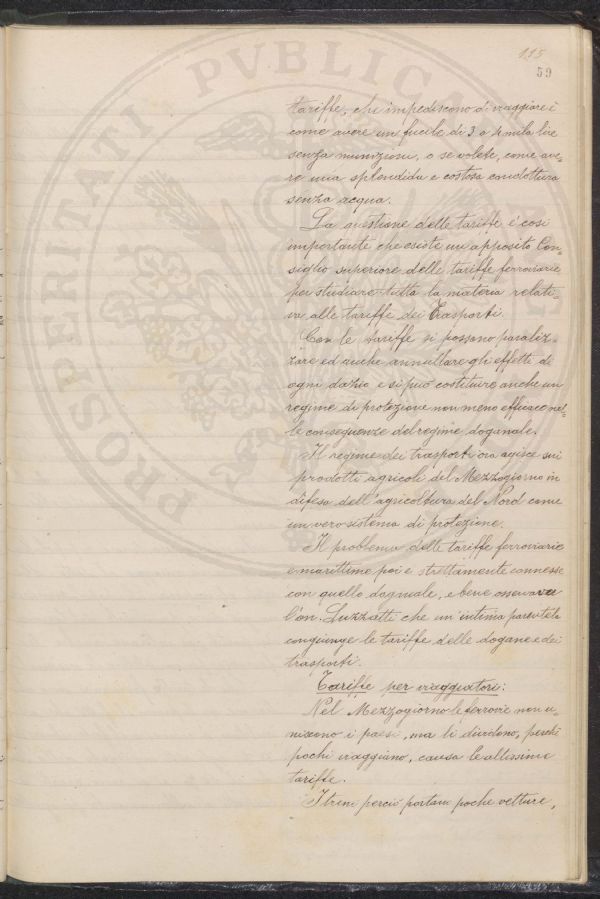 115
59
tariffe, che impediscono di viaggiare è
come avere un fucile di 3 o 4 mila lire
senza munizioni, o se volete, come ave=
re una splendida e costosa condottura
senza acqua.
La questione delle tariffe è così
importante che esiste un apposito Con=
siglio superiore delle tariffe ferroviarie
per studiare tutta la materia relati=
va alle tariffe dei Trasporti.
Con le tariffe si possono paraliz=
zare ed anche annullare gli effetti di
ogni dazio e si può costituire anche un
regime di protezione non meno efficace nel=
le conseguenze del regime doganale.
Il regime dei trasporti ora agisce sui
prodotti agricoli del Mezzogiorno in
difesa dell'agricoltura del Nord come
un vero sistema di protezione.
Il problema delle tariffe ferroviarie
e marittime poi è strettamente connesse
con quello doganale, e bene osservava
l'on. Luzzatti che un'intima parentela
congiunge le tariffe delle dogane e dei
trasporti.
Tariffe per viaggiatori:
Nel Mezzogiorno le ferrovie non u=
niscono i paesi, ma li dividono, perchè
pochi viaggiano, causa le altissime
tariffe.
I treni perciò portano poche vetture,
PROSPERITATI PVBLICAE